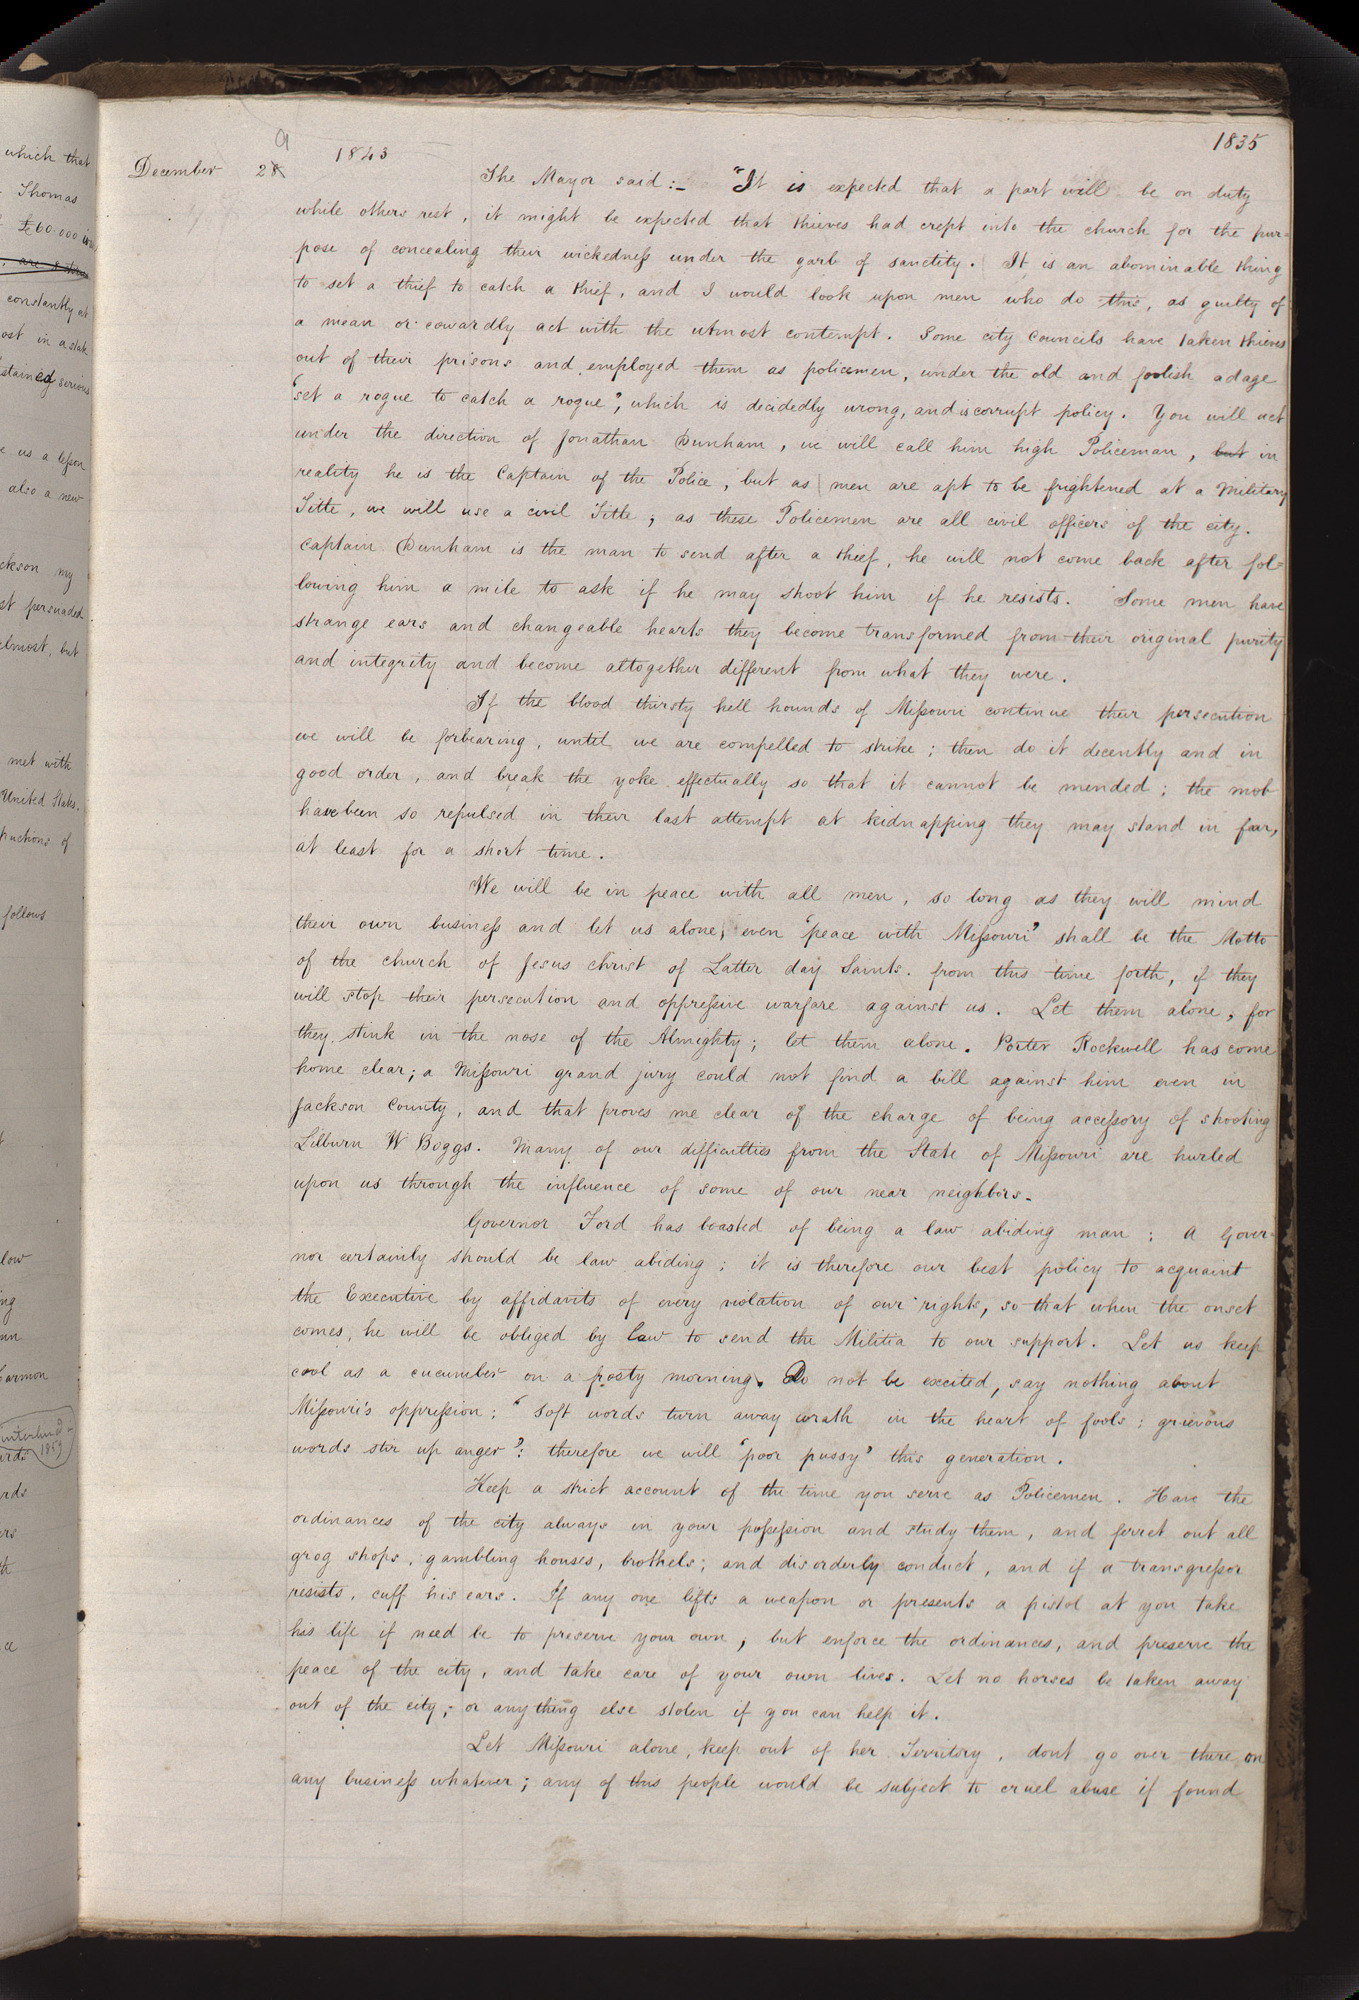 which that
Thomas
£60.000 is
constantly at
ost in a state
stained serious
e us a leſson
also a new
ckson my
st persuaded
almost, but
met with
United States.
tructions of
follows
low
ng
Carmon
1859
ards
rds
ers
1835
9
1843
December 28
The Mayor said:– "It is expected that a part will be on duty
while others rest, it might be expected that thieves had crept into the church for the pur=
pose of concealing their wickedneſs under the garb of sanctity. It is an abominable thing
to set a thief to catch a thief, and I would look upon men who do this, as guilty of
a mean or cowardly act with the utmost contempt. Some city councils have taken thieves
out of their prisons and employed them as policemen, under the old and foolish adage
"set a rogue to catch a rogue", which is decidedly wrong, and is corrupt policy. You will act
under the direction of Jonathan Dunham, we will call him high Policeman, but in
reality he is the Captain of the Police, but as men are apt to be frightened at a Military
Title, we will use a civil Title; as these Policemen are all civil officers of the city.
Captain Dunham is the man to send after a thief, he will not come back after fol=
lowing him a mile to ask if he may shoot him if he resists. Some men have
strange ears and changeable hearts they become transformed from their original purity
and integrity and become altogether different from what they were.
If the blood thirsty hell hounds of Miſsouri continue their persecution
we will be forbearing, until we are compelled to strike; then do it decently and in
good order, and break the yoke effectually so that it cannot be mended; the mob
have been so repulsed in their last attempt at kidnapping they may stand in fear,
at least for a short time.
We will be in peace with all men, so long as they will mind
their own buisneſs and let us alone; even "peace with Miſsouri" shall be the Motto
of the church of Jesus christ of Latter day Saints. from this time forth, if they
will stop their persecution and oppreſsive warfare against us. Let them alone, for
they stink in the nose of the Almighty; let them alone. Porter Rockwell has come
home clear; a Miſsouri grand jury could not find a bill against him even in
Jackson County, and that proves me clear of the charge of being acceſsory of shooting
Lilburn W Boggs. Many of our difficulties from the State of Miſsouri are hurled
upon us through the influence of some of our near neighbors.
Governor Ford has boasted of being a law abiding man; A Gover=
nor certainly should be law abiding; it is therefore our best policy to acquaint
the Executive by affidavits of every violation of our rights, so that when the onset
comes, he will be obliged by law to send the Militia to our support. Let us keep
cool as a cucumber on a frosty morning. Do not be excited, say nothing about
Miſsouri's oppreſsion; "Soft words turn away wrath in the heart of fools; grievous
words stir up anger"; therefore we will "poor pussy" this generation.
Keep a strict account of the time you serve as Policemen. Have the
ordinances of the city always in your poſseſsion and study them, and ferret out all
grog shops, gambling houses, brothels; and disorderly conduct, and if a transgreſsor
resists, cuff his ears. If any one lifts a weapon or presents a pistol at you take
his life if need be to preserve your own, but enforce the ordinances, and preserve the
peace of the city, and take care of your own lives. Let no horses be taken away
out of the city; or anything else stolen if you can help it.
Let Miſsouri alone, keep out of her Territory, dont go over there on
any businefs whatever; any of this people would be subject to cruel abuse if found